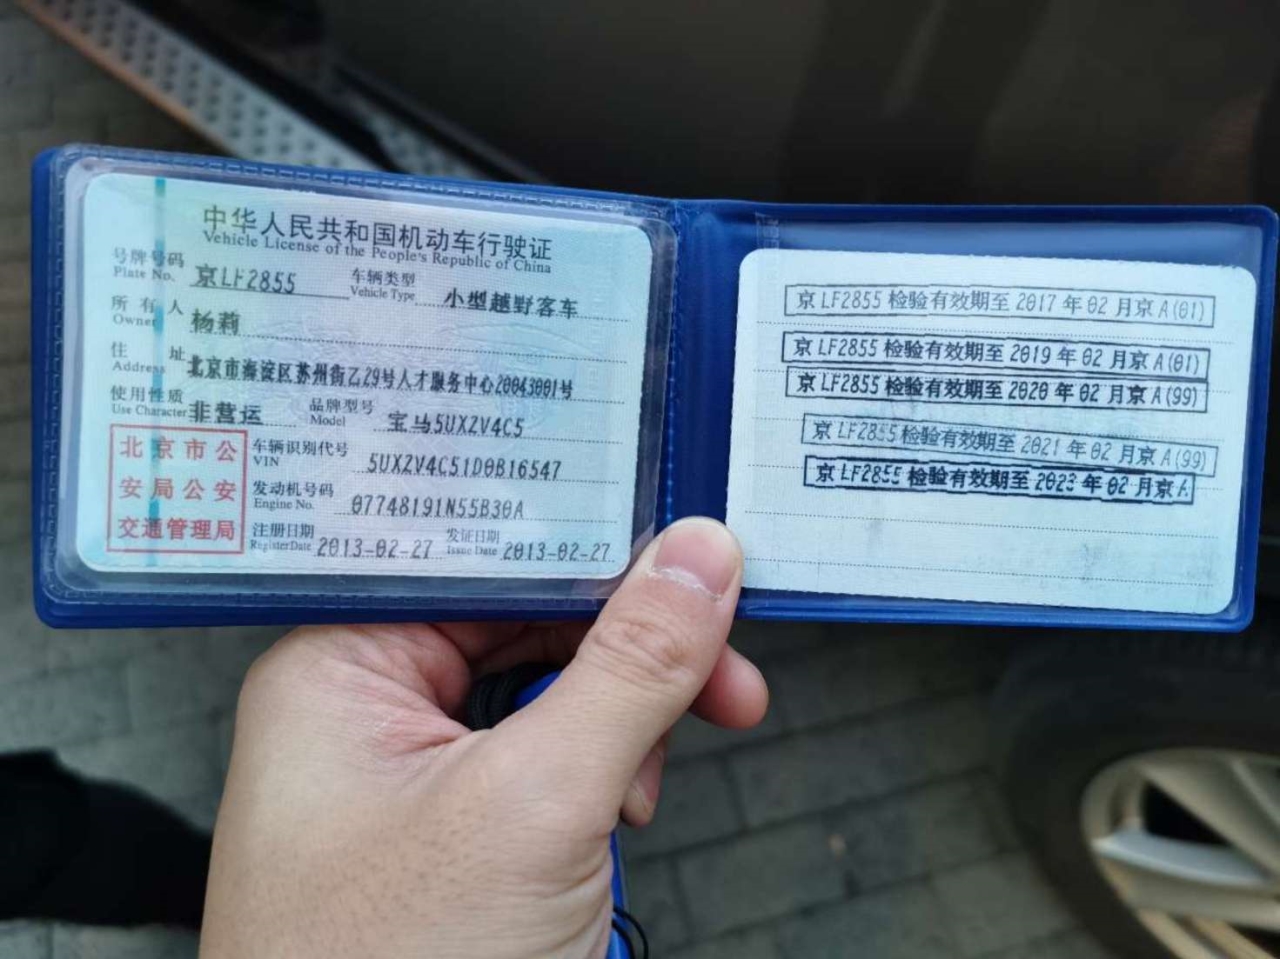 中华人民共和国机动车行驶证
Vehicle License of the People's Republic of China
号牌号码 京LF2855 车辆类型 小型越野客车
Plate No. Vehicle Type
所有人 杨莉
Owner
住址 北京市海淀区苏州街乙29号人才服务中心20043001号
Address
使用性质 非营运 品牌型号 宝马5UXZV4C5
Use Character Model
北京市公
安局公安
交通管理局
车辆识别代号 5UXZV4C51D0B16547
VIN
发动机号码 07748191N55B30A
Engine No.
注册日期 2013-02-27 发证日期 2013-02-27
Register Date Issue Date
京LF2855检验有效期至2017年02月京A(01)
京LF2855检验有效期至2019年02月京A(01)
京LF2855检验有效期至2020年02月京A(99)
京LF2855检验有效期至2021年02月京A(99)
京LF2855检验有效期至2023年02月京A